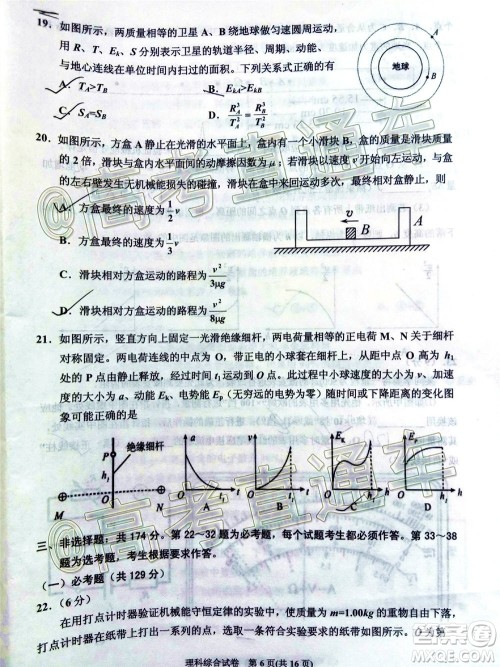 19. 如图所示，两质量相等的卫星 A、B 绕地球做匀速圆周运动，
用 R、T、Eₖ、S 分别表示卫星的轨道半径、周期、动能、
与地心连线在单位时间内扫过的面积。下列关系式正确的有
A. T_A>T_B B. E_kA>E_kB
C. S_A=S_B D. R_A³/T_A²=R_B³/T_B²
地球
A
B
20. 如图所示，方盒 A 静止在光滑的水平面上，盒内有一个小滑块 B，盒的质量是滑块质量
的 2 倍，滑块与盒内水平面间的动摩擦因数为 μ；若滑块以速度 v 开始向左运动，与盒
的左右壁发生无机械能损失的碰撞，滑块在盒中来回运动多次，最终相对方盒静止，则
A. 方盒最终的速度为 1/2 v
B. 方盒最终的速度为 1/3 v
C. 滑块相对方盒运动的路程为 v²/3μg
D. 滑块相对方盒运动的路程为
v
B
A
21. 如图所示，竖直方向上固定一光滑绝缘细杆，两电荷量相等的正电荷 M、N 关于细杆
对称固定。两电荷连线的中点为 O，带正电的小球套在细杆上，从距中点 O 高为 h₁
处的 P 点由静止释放，经过时间 t₁ 运动到 O 点。此过程中小球速度的大小为 v、加速
度的大小为 a、动能 Eₖ、电势能 Eₚ（无穷远的电势为零）随时间或下降距离的变化图
象可能正确的是
绝缘细杆
P
h₁
O
M
N
a
O t₁ t
A
v
O t₁ t
B
Eₖ
O h₁ h
C
Eₚ
O h₁ h
D
三、非选择题：共 174 分。第 22～32 题为必考题，每个试题考生都必须作答。第 33～38
题为选考题，考生根据要求作答。
（一）必考题（共 129 分）
22.（6 分）
在用打点计时器验证机械能守恒定律的实验中，使质量为 m=1.00kg 的重物自由下落，
打点计时器在纸带上打出一系列的点，选取一条符合实验要求的纸带如图所示。O 为第
理科综合试卷 第 6 页(共 16 页)
@高考直通车
@高考直通车